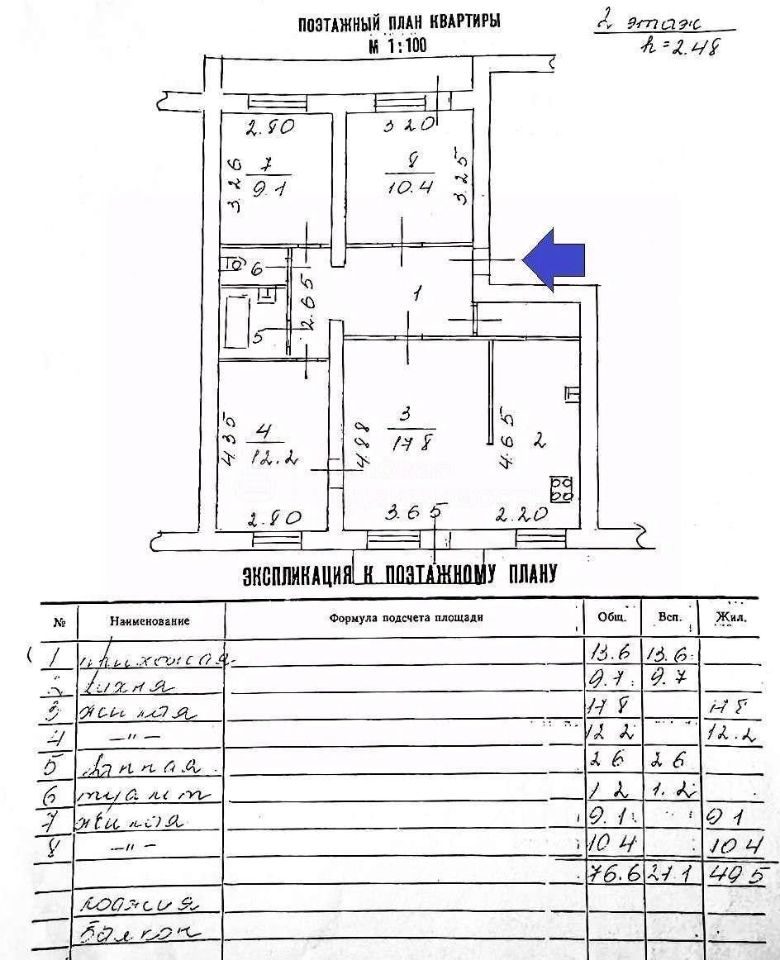 ПОЭТАЖНЫЙ ПЛАН КВАРТИРЫ
М 1:100
2 этаж
h=2.48
2.80
3.20
3.26
7
9.1
8
10.4
3.25
6
2.65
1
5
4.35
4
12.2
4.88
3
17.8
4.65
2
2.80
3.65
2.20
ЭКСПЛИКАЦИЯ К ПОЭТАЖНОМУ ПЛАНУ
№ Наименование Формула подсчета площади Общ. Всп. Жил.
1 прихожая 13.6 13.6
2 кухня 9.7 9.7
3 жилая 17.8 17.8
4 —"— 12.2 12.2
5 ванная 2.6 2.6
6 туалет 1.2 1.2
7 жилая 9.1 9.1
8 —"— 10.4 10.4
76.6 27.1 49.5
лоджия
балкон